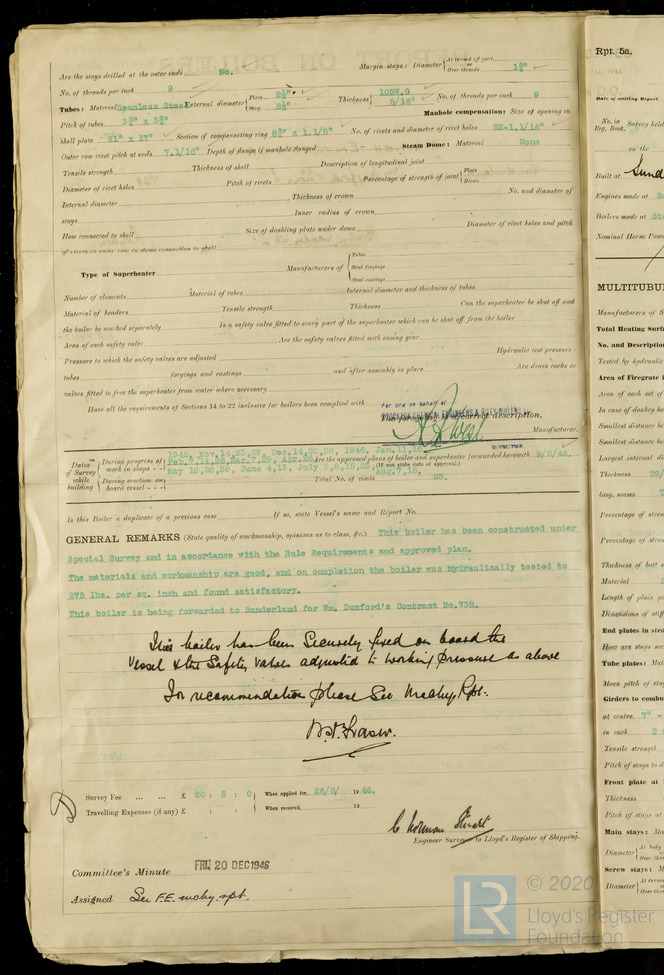 Are the stays drilled at the outer ends No. Margin stays: Diameter { At turned off part, or Over threads 1¾"
No. of threads per inch 9
Tubes: Material Seamless Steel External diameter { Plain 2½" Stay 2½" Thickness { 10SW.G 5/16" No. of threads per inch 9
Pitch of tubes 3¾" x 3¾" Manhole compensation: Size of opening in
shell plate 21" x 17" Section of compensating ring x 1.1/8" No. of rivets and diameter of rivet holes 52-1.1/16"
Outer row rivet pitch at ends 7.1/16" Depth of flange if manhole flanged Steam Dome: Material None
Tensile strength Thickness of shell Description of longitudinal joint
Diameter of rivet holes Pitch of rivets Percentage of strength of joint { Plate Rivets
Internal diameter Thickness of crown No. and diameter of
stays Inner radius of crown
How connected to shell Size of doubling plate under dome Diameter of rivet holes and pitch
of rivets in outer row in dome connection to shell
Type of Superheater Manufacturers of { Tubes Steel forgings Steel castings
Number of elements Material of tubes Internal diameter and thickness of tubes
Material of headers Tensile strength Thickness Can the superheater be shut off and
the boiler be worked separately Is a safety valve fitted to every part of the superheater which can be shut off from the boiler
Area of each safety valve Are the safety valves fitted with easing gear
Pressure to which the safety valves are adjusted Hydraulic test pressure:
tubes forgings and castings and after assembly in place Are drain cocks or
valves fitted to free the superheater from water where necessary
Have all the requirements of Sections 14 to 22 inclusive for boilers been complied with
For and on behalf of
The foregoing is a correct description,
Manufacturer.
DIRECTOR
Dates of Survey while building { During progress of work in shops - - 1945, Nov.14,23,29, Dec.14,20,28, 1946, Jan.11,16
Are the approved plans of boiler and superheater forwarded herewith 9/2/45.
(If not state date of approval.)
During erection on board vessel - - - May 10,20,30, June 4,13, July 2,8,15,23, Aug.7,15.
Total No. of visits 26.
Is this Boiler a duplicate of a previous case If so, state Vessel's name and Report No.
GENERAL REMARKS (State quality of workmanship, opinions as to class, &c.) This boiler has been constructed under
Special Survey and in accordance with the Rule Requirements and approved plan.
The materials and workmanship are good, and on completion the boiler was hydraulically tested to
275 lbs. per sq. inch and found satisfactory.
This boiler is being forwarded to Sunderland for Wm. Doxford's Contract No.738.
This boiler has been securely fixed on board the
Vessel & the Safety Valves adjusted to working pressure as above
For recommendation please See Machy. Rpt.
Fraser.
Survey Fee ... ... £ 20 : 5 : 0 When applied for, 26/8/ 1946.
Travelling Expenses (if any) £ : : When received, 19
C Norman Stuart
Engineer Surveyor to Lloyd's Register of Shipping.
Committee's Minute FRI. 20 DEC 1946
Assigned See F.E. mchy. rpt.
Rpt. 5a.
Date of writing Report
No. in Reg. Book. Survey held
on the
Built at Sund
Engines made at
Boilers made at
Nominal Horse Powe
MULTITUBU
Manufacturers of S
Total Heating Surf
No. and Description
Tested by hydraulic
Area of Firegrate i
Area of each set of
In case of donkey b
Smallest distance be
Smallest distance be
Largest internal dia
Thickness 29/
long. seams
Percentage of stren
Percentage of stren
Thickness of butt s
Material
Length of plain p
Dimensions of stiff
End plates in stea
How are stays sec
Tube plates: Mate
Mean pitch of stay
Girders to combus
at centre 7" -
in each 2
Tensile strength
Pitch of stays to d
Front plate at
Thickness
Pitch of stays at
Main stays: Ma
Diameter { At body or Over thre
Screw stays: M
Diameter { At turne or Over thre
LR
© 2020
Lloyd's Register
Foundation